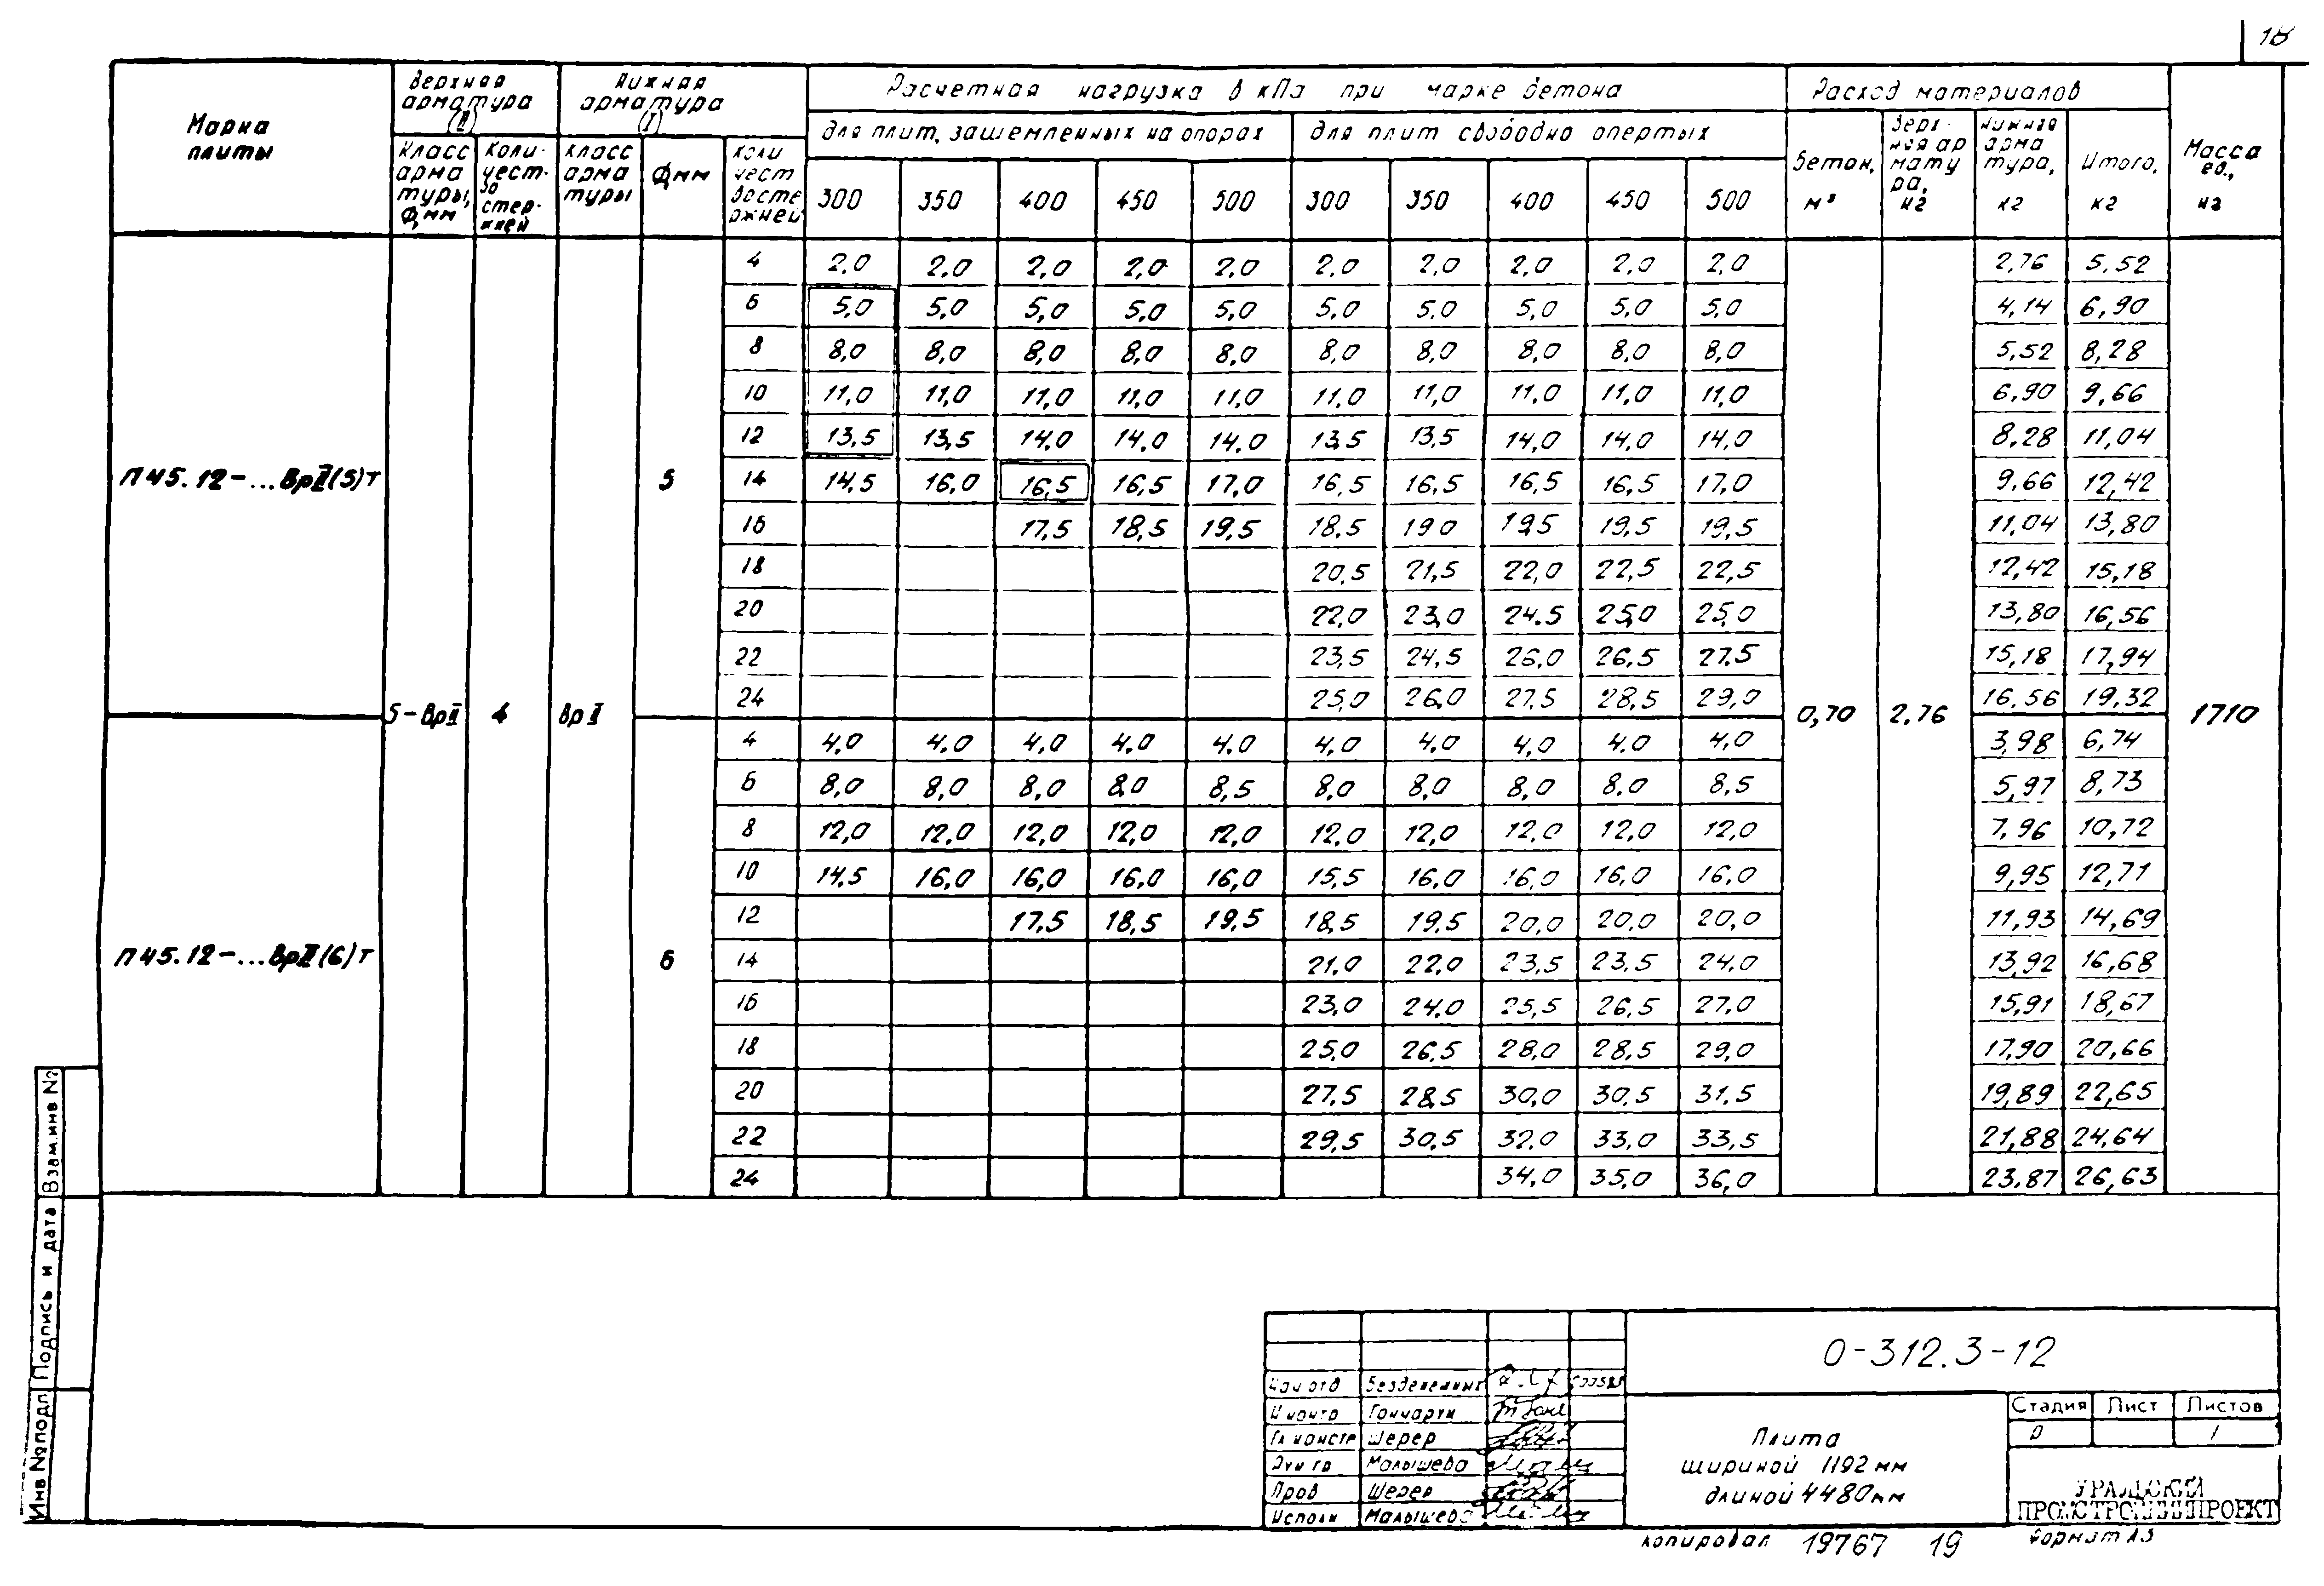 18
Марка плиты
Верхняя арматура (II)
Нижняя арматура (I)
Расчетная нагрузка в кПа при марке бетона
Расход материалов
Масса ед., кг
для плит, защемленных на опорах
для плит свободно опертых
Класс арматуры, Ф мм
Количество стержней
Класс арматуры
Ф мм
Количество стержней
300 350 400 450 500 300 350 400 450 500
Бетон, м³
Верхняя арматура, кг
Нижняя арматура, кг
Итого, кг
П45.12-...ВрII(5)т
5-ВрII 4 ВрII
5
4 2,0 2,0 2,0 2,0 2,0 2,0 2,0 2,0 2,0 2,0 2,76 5,52
6 5,0 5,0 5,0 5,0 5,0 5,0 5,0 5,0 5,0 5,0 4,14 6,90
8 8,0 8,0 8,0 8,0 8,0 8,0 8,0 8,0 8,0 8,0 5,52 8,28
10 11,0 11,0 11,0 11,0 11,0 11,0 11,0 11,0 11,0 11,0 6,90 9,66
12 13,5 13,5 14,0 14,0 14,0 13,5 13,5 14,0 14,0 14,0 8,28 11,04
14 14,5 16,0 16,5 16,5 17,0 16,5 16,5 16,5 16,5 17,0 9,66 12,42
16 17,5 18,5 19,5 18,5 19,0 19,5 19,5 19,5 11,04 13,80
18 20,5 21,5 22,0 22,5 22,5 12,42 15,18
20 22,0 23,0 24,5 25,0 25,0 13,80 16,56
22 23,5 24,5 26,0 26,5 27,5 15,18 17,94
24 25,0 26,0 27,5 28,5 29,0 16,56 19,32
0,70 2,76 1710
П45.12-...ВрII(6)т
6
4 4,0 4,0 4,0 4,0 4,0 4,0 4,0 4,0 4,0 4,0 3,98 6,74
6 8,0 8,0 8,0 8,0 8,5 8,0 8,0 8,0 8,0 8,5 5,97 8,73
8 12,0 12,0 12,0 12,0 12,0 12,0 12,0 12,0 12,0 12,0 7,96 10,72
10 14,5 16,0 16,0 16,0 16,0 15,5 16,0 16,0 16,0 16,0 9,95 12,71
12 17,5 18,5 19,5 18,5 19,5 20,0 20,0 20,0 11,93 14,69
14 21,0 22,0 23,5 23,5 24,0 13,92 16,68
16 23,0 24,0 25,5 26,5 27,0 15,91 18,67
18 25,0 26,5 28,0 28,5 29,0 17,90 20,66
20 27,5 28,5 30,0 30,5 31,5 19,89 22,65
22 29,5 30,5 32,0 33,0 33,5 21,88 24,64
24 34,0 35,0 36,0 23,87 26,63
Взам.инв №
Подпись и дата
Инв №подл
0-312.3-12
Нач отд
Н контр Гончарти
Гл констр Шерер
Рук гр Малышева
Пров Шерер
Исполн Малышева
Плита
шириной 1192 мм
длиной 4480 мм
Стадия Лист Листов
Р 1
УРАЛЬСКИЙ
ПРОМСТРОЙНИИПРОЕКТ
Копировал 19767 19 Формат А3